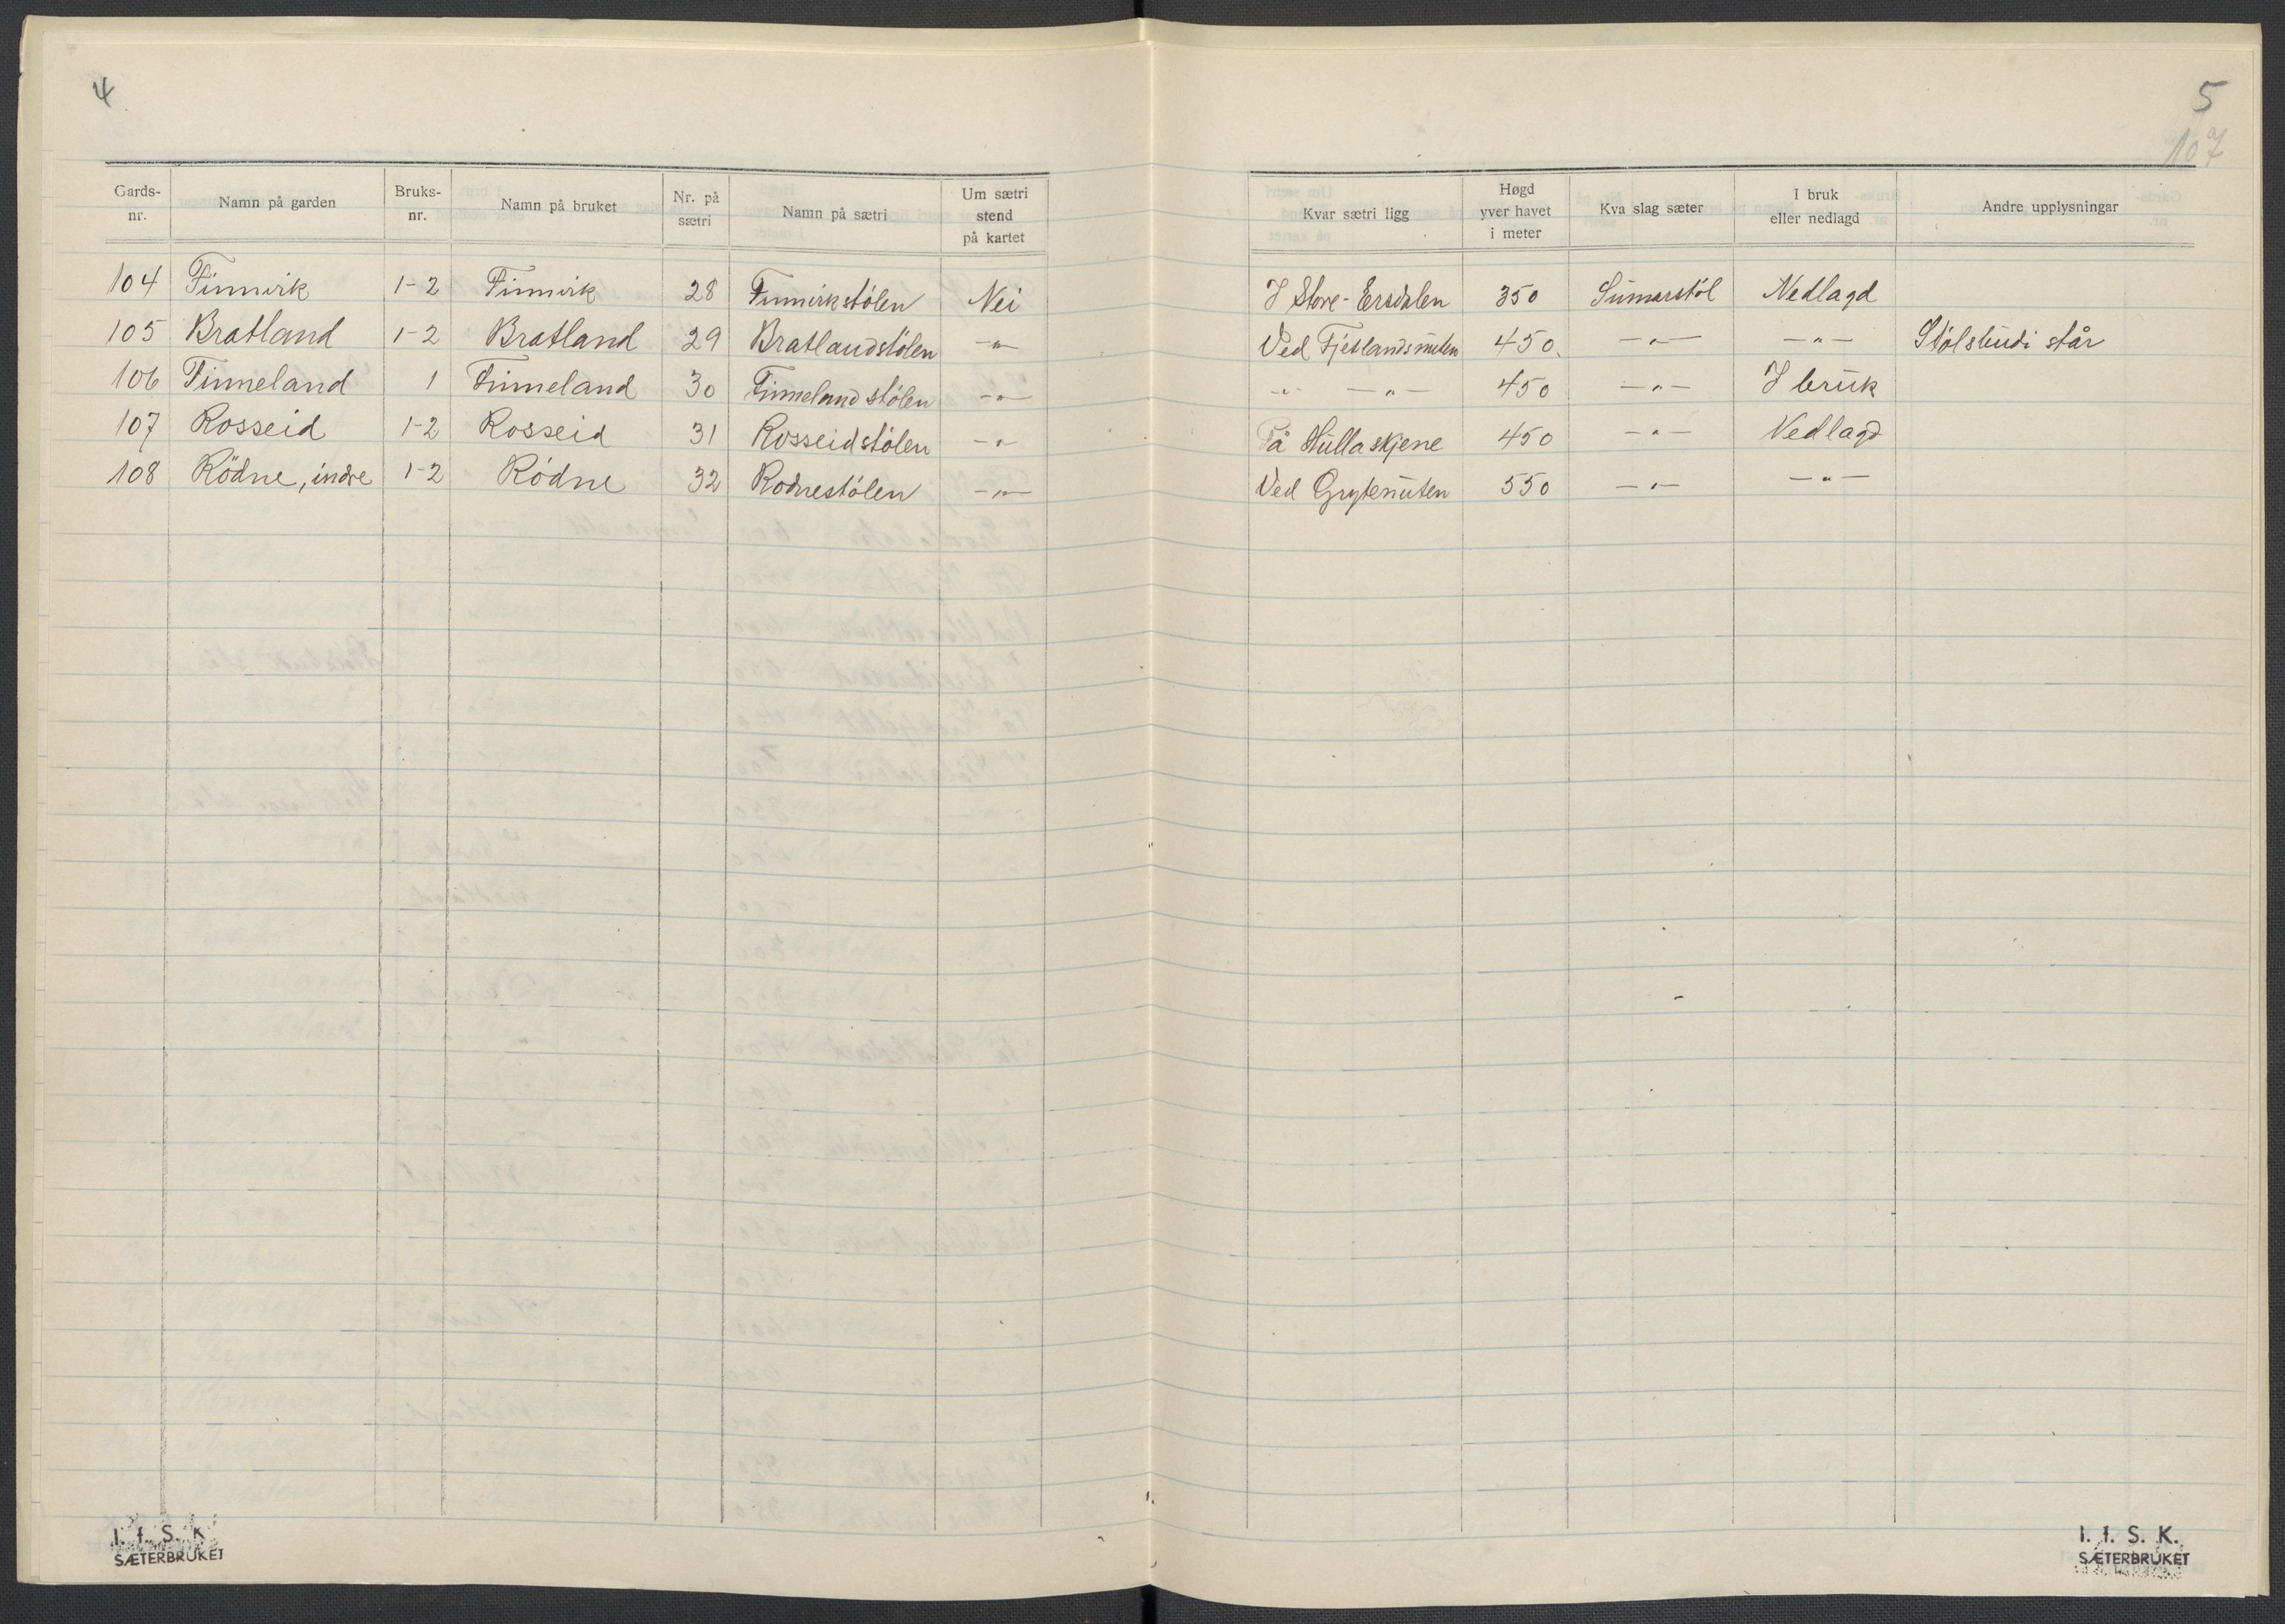 4
Gards-nr. Namn på garden Bruks-nr. Namn på bruket Nr. på sætri Namn på sætri Um sætri stend på kartet
104 Finnvik 1-2 Finnvik 28 Finnvikstölen Nei
105 Bratland 1-2 Bratland 29 Bratlandstölen -"-
106 Finneland 1 Finneland 30 Finnelandstölen -"-
107 Rosseid 1-2 Rosseid 31 Rosseidstölen -"-
108 Rödne, indre 1-2 Rödne 32 Rödnestölen -"-
I. f. S. K.
SÆTERBRUKET
5
107
Kvar sætri ligg Høgd yver havet i meter Kva slag sæter I bruk eller nedlagd Andre upplysningar
I Store-Ersdalen 350 Sumarstöl Nedlagd
Ved Fjetlandsnuten 450 -"- -"- Stölsbudi står
-"- -"- 450 -"- I bruk
På Hullaskjene 450 -"- Nedlagd
Ved Grytenuten 550 -"- -"-
I. f. S. K.
SÆTERBRUKET